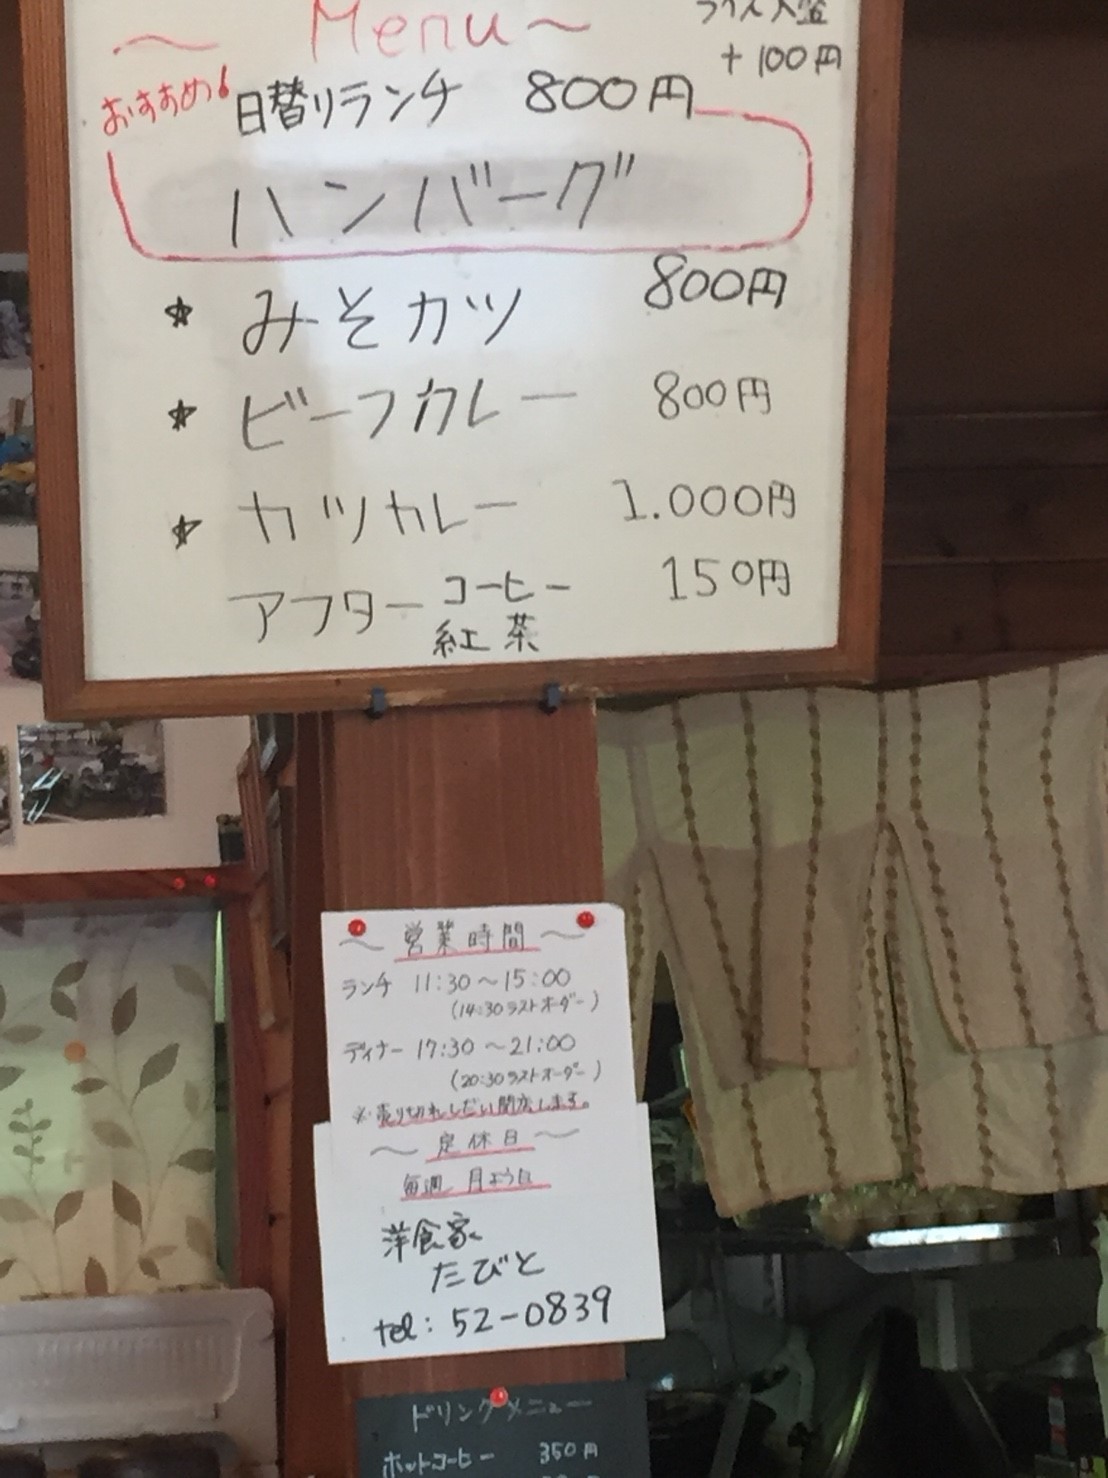 ～ Menu ～
ライス大盛
+100円
おすすめ!
日替りランチ 800円
ハンバーグ
★ みそカツ 800円
★ ビーフカレー 800円
★ カツカレー 1.000円
アフター コーヒー 紅茶 150円
～ 営業時間 ～
ランチ 11:30～15:00
(14:30ラストオーダー)
ディナー 17:30～21:00
(20:30ラストオーダー)
※売り切れしだい閉店します。
～ 定休日 ～
毎週 月よう日
洋食家
たびと
tel: 52-0839
ドリンクメニュー
ホットコーヒー 350円